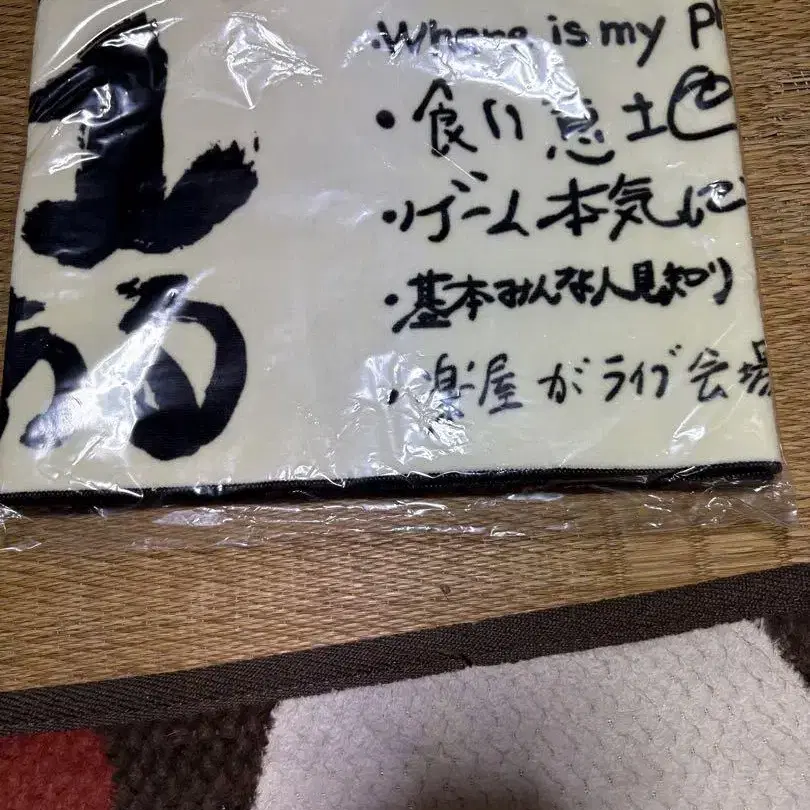 ・Where is my P
・食い意土
・ゲーム本気に
・基本みんな人見知り
・楽屋がライブ会場